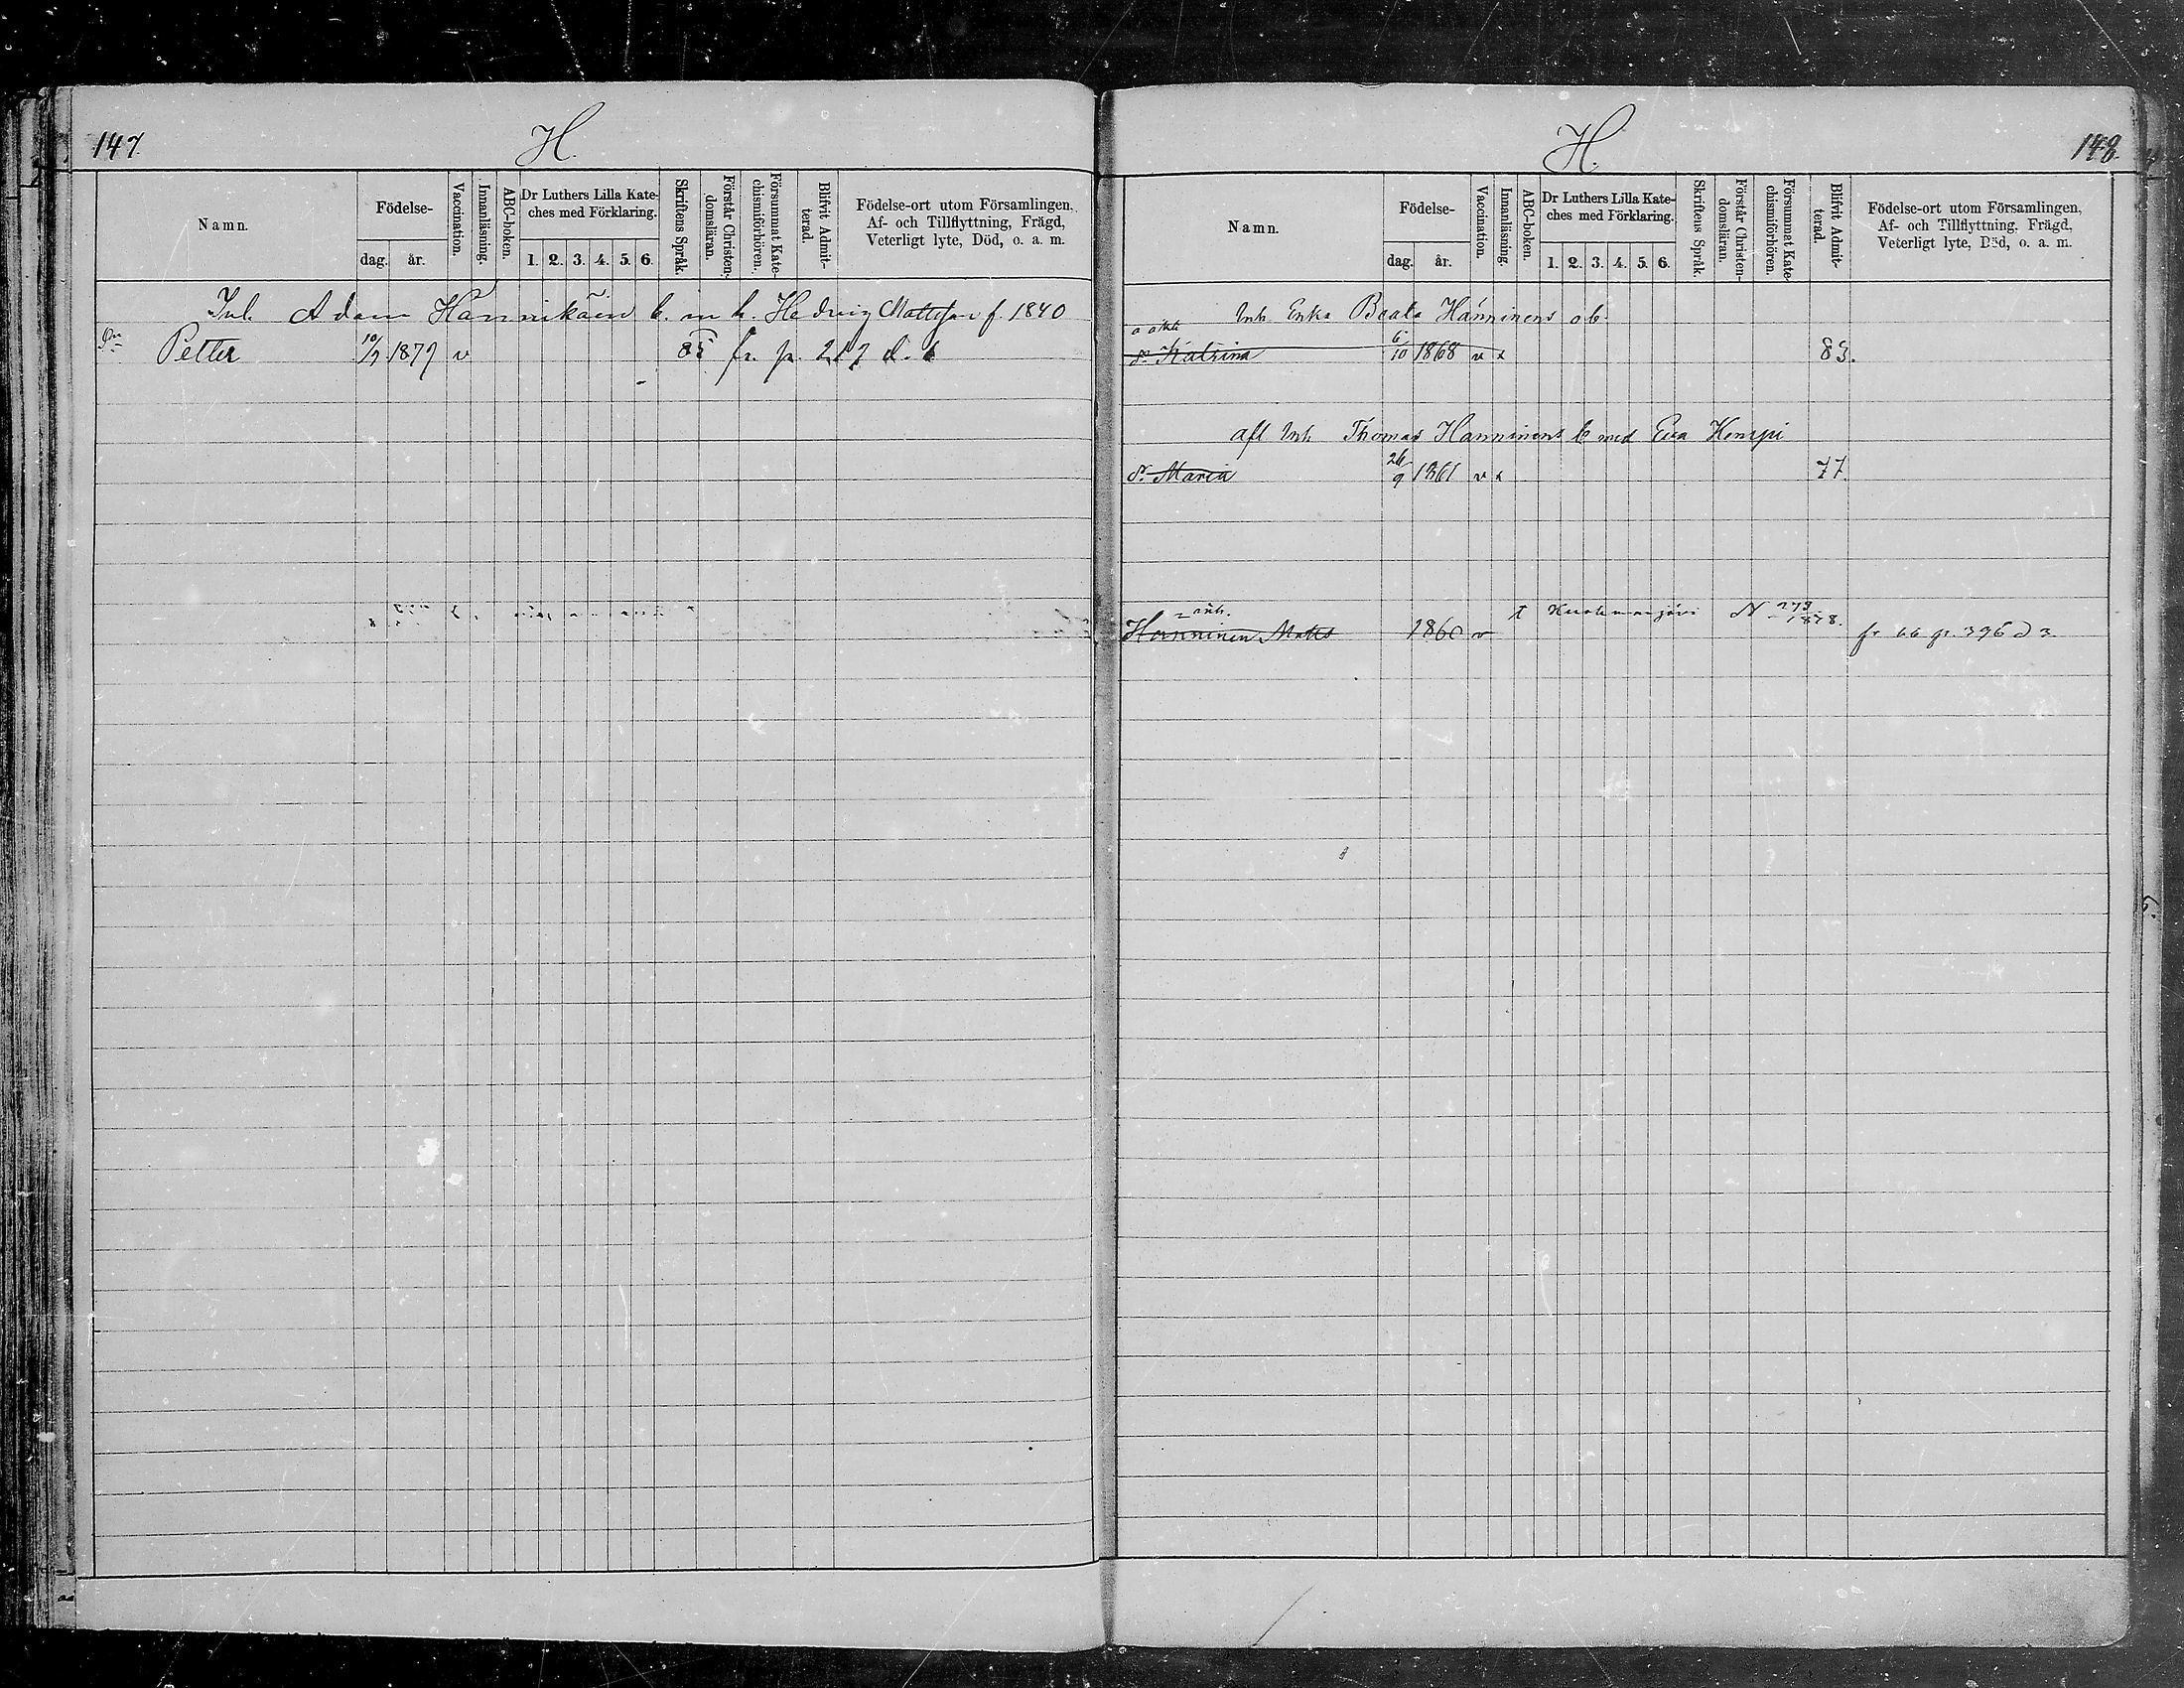 147.
H.
Namn.
Födelse-
dag. år.
Vaccination.
Innanläsning.
ABC-boken.
Dr Luthers Lilla Kate-
ches med Förklaring.
1. 2. 3. 4. 5. 6.
Skriftens Språk.
Förstår Christen-
domsläran.
Försummat Kate-
chismiförhören.
Blifvit Admit-
terad.
Födelse-ort utom Församlingen,
Af- och Tillflyttning, Frägd,
Veterligt lyte, Död, o. a. m.
Inh. Adam Hännikäin b. m h. Hedvig Mattsson f. 1840
Petter 10/7 1879 v 85 fr. p. 217 d. 6
H.
148.
Namn.
Födelse-
dag. år.
Vaccination.
Innanläsning.
ABC-boken.
Dr Luthers Lilla Kate-
ches med Förklaring.
1. 2. 3. 4. 5. 6.
Skriftens Språk.
Förstår Christen-
domsläran.
Försummat Kate-
chismiförhören.
Blifvit Admit-
terad.
Födelse-ort utom Församlingen,
Af- och Tillflyttning, Frägd,
Veterligt lyte, Död, o. a. m.
Inh Enka Beata Hänninens o b.
o äkta
dr Katrina 6/10 1868 v x 83.
afl Inh Thomas Hänninens b med Eva Hemppi
dr Maria 26/9 1861 v x 77.
inh.
Hänninen Matts 1860 v
N 279 1878.
fr 66 p. 396 d 3.